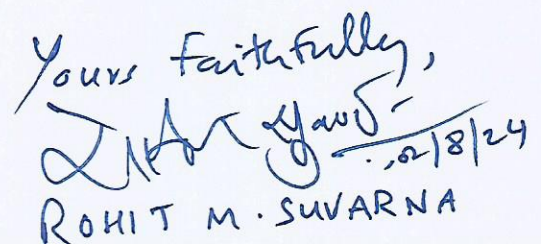 Yours faithfully,
02/8/24
ROHIT M. SUVARNA